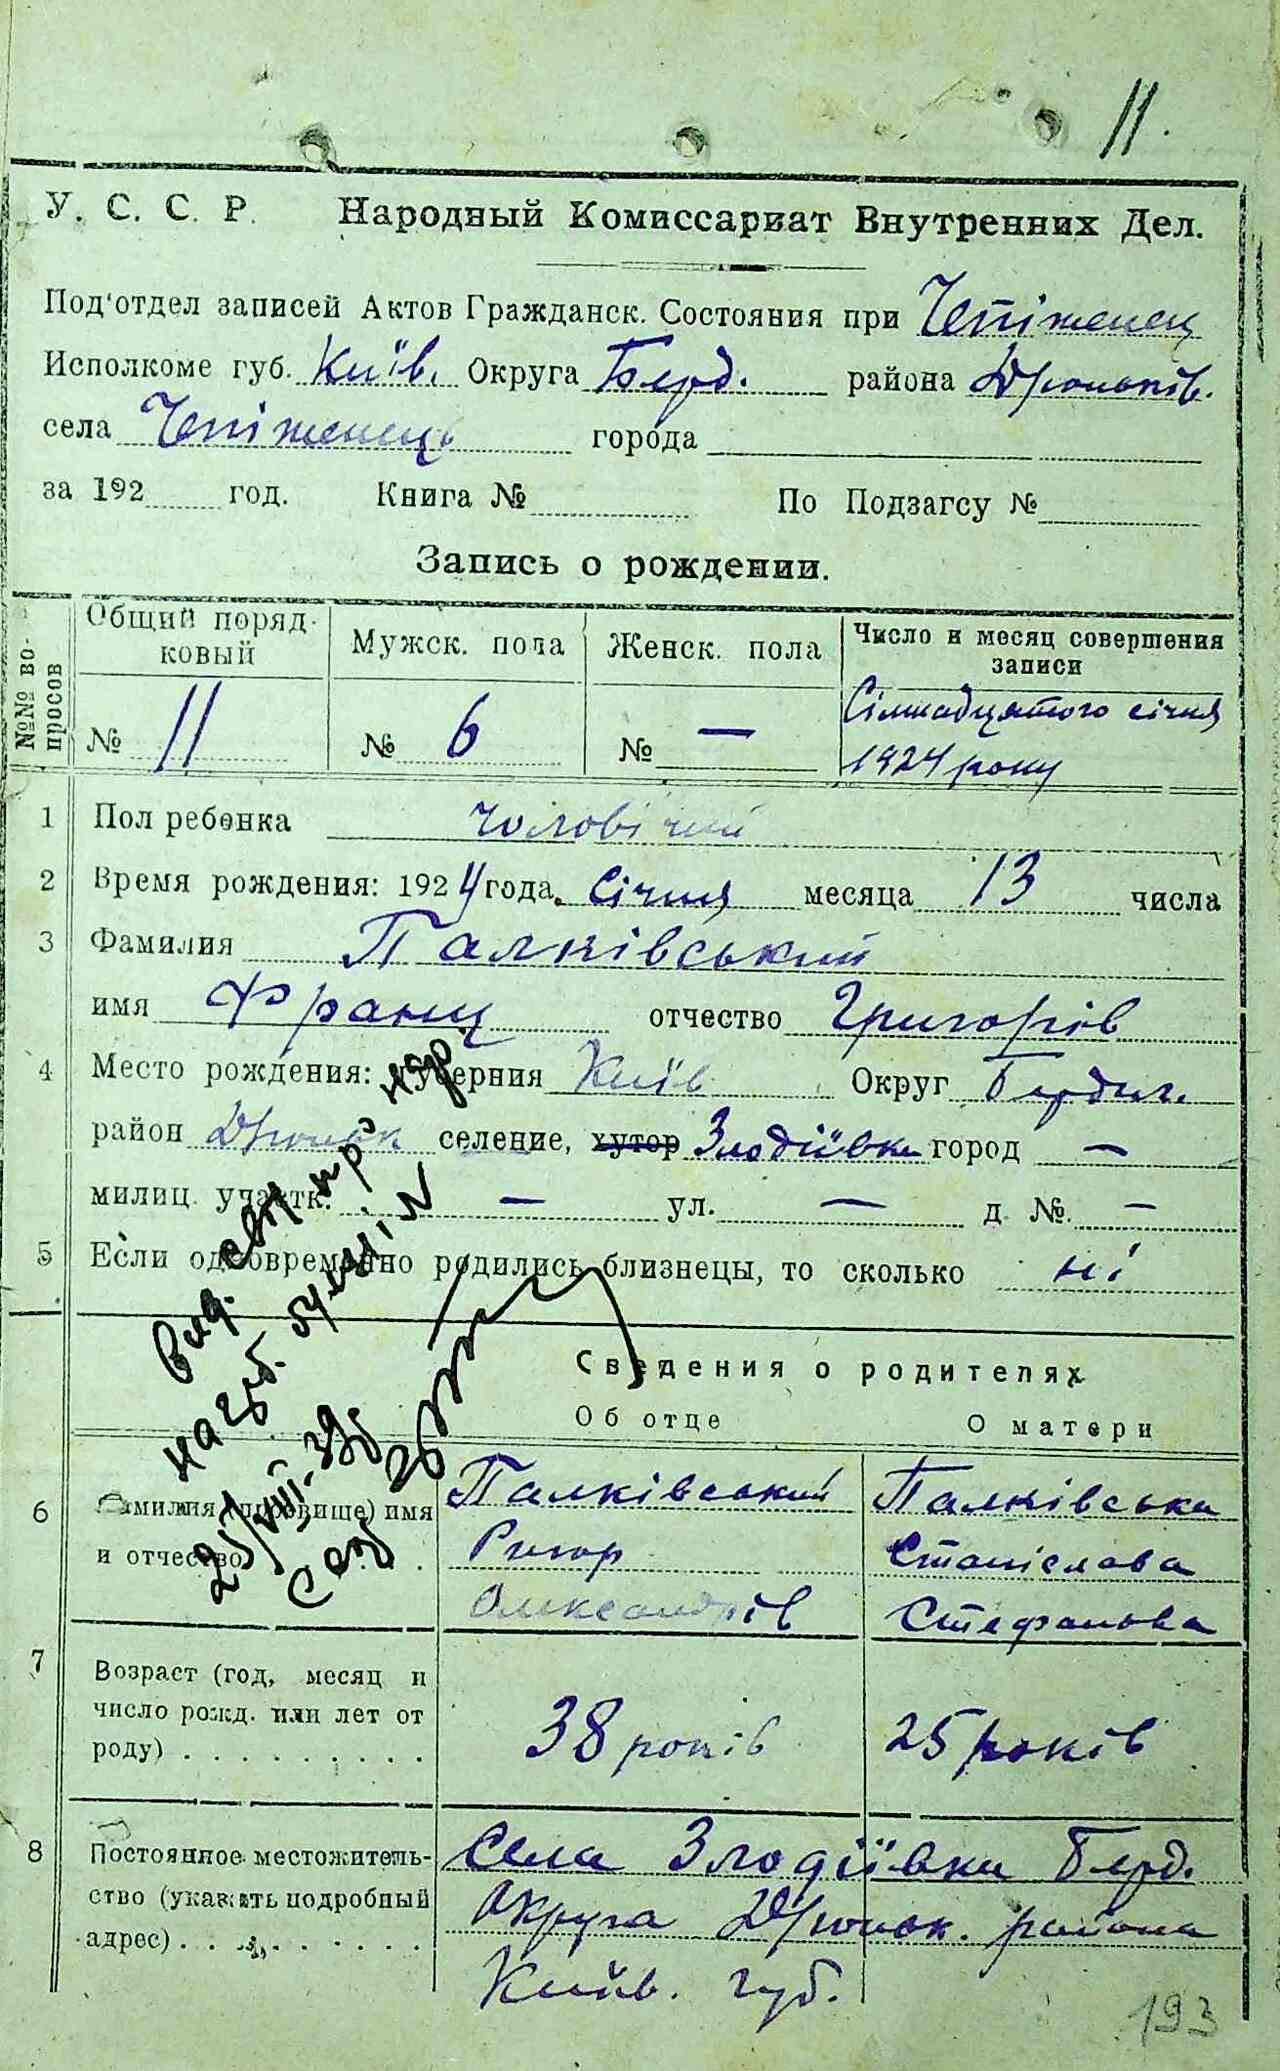 11.
У. С. С. Р. Народный Комиссариат Внутренних Дел.
Под'отдел записей Актов Гражданск. Состояния при Чепіженец
Исполкоме губ. Київ. Округа Берд. района
села Чепіженець города
за 192 год. Книга № По Подзагсу №
Запись о рождении.
№№ вопросов
Общий порядковый № 11
Мужск. пола № 6
Женск. пола № —
Число и месяц совершения записи
Сімнадцятого січня
1924 року
1 Пол ребенка чоловічий
2 Время рождения: 1924 года. Січня месяца 13 числа
3 Фамилия Палківський
имя Франц отчество Григорів
4 Место рождения: губерния Київ Округ Бердич.
район селение, хутор Злодіївка город —
милиц. участк. — ул. — д. №. —
5 Если одновременно родились близнецы, то сколько ні
Сведения о родителях
Об отце О матери
6 Фамилия (прозвище) имя
и отчество
Палківський
Ригор
Олександрів
Палківська
Станіслава
Стефанова
7 Возраст (год, месяц и
число рожд. или лет от
роду)
38 років
25 років
8 Постоянное местожительство (указать подробный
адрес)
Села Злодіївки Берд.
Округа района
Київ. губ.
193